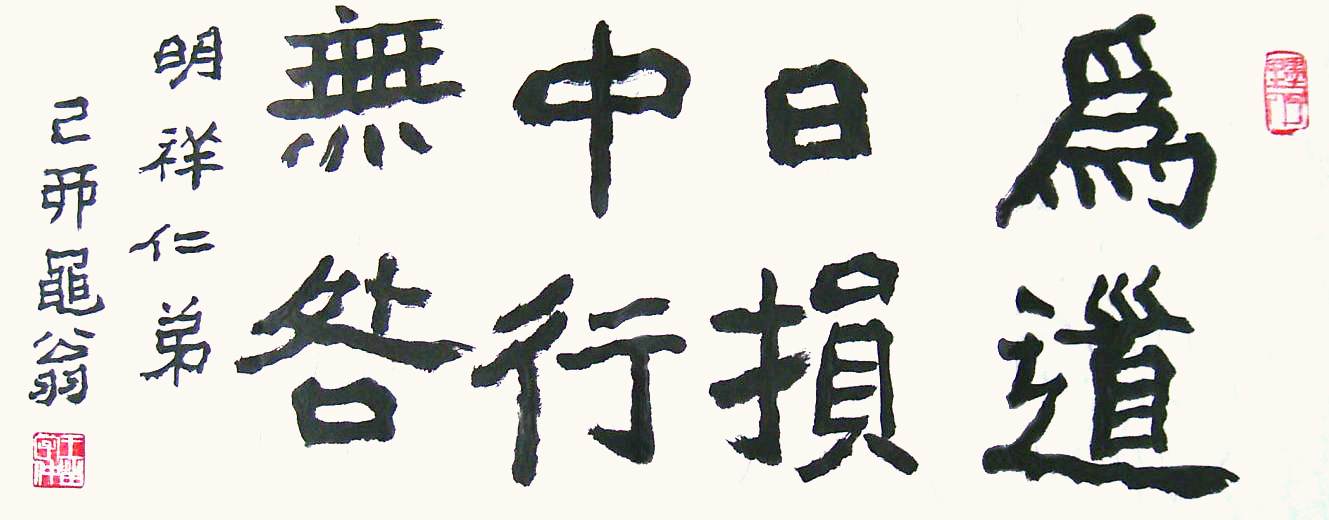 爲道
日損
中行
無咎
明祥仁弟
己卯龜翁